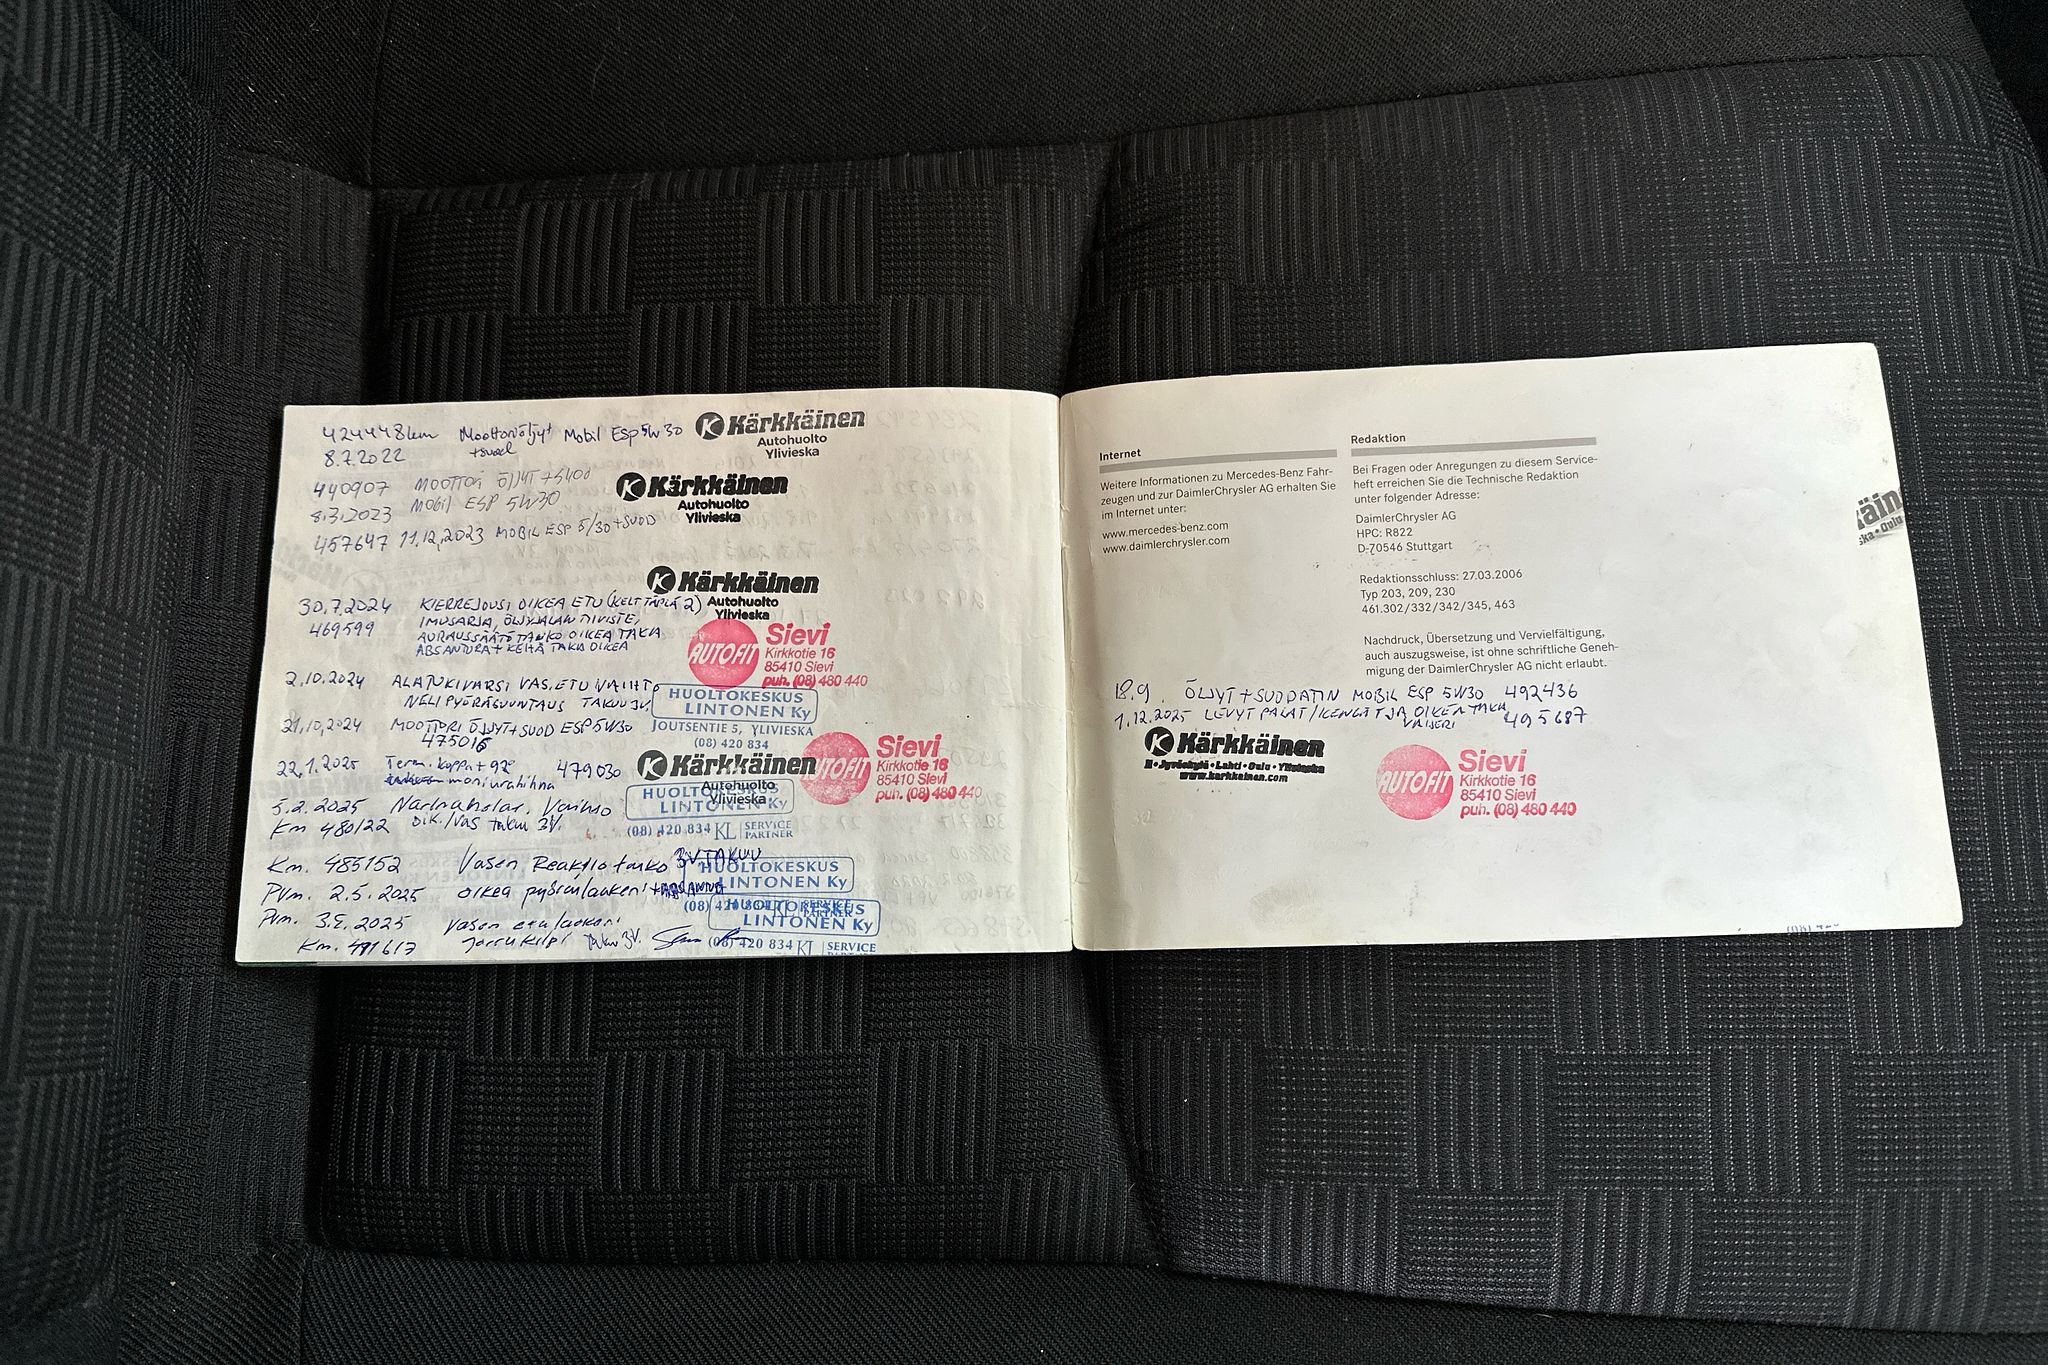 424448km Moottoriöljyt Mobil ESP 5W30
8.7.2022 +suod
Kärkkäinen
Autohuolto
Ylivieska
440907 MOOTTORI ÖLJYT + SUOD
8.3.2023 MOBIL ESP 5W30
Kärkkäinen
Autohuolto
Ylivieska
457647 11.12.2023 MOBIL ESP 5/30 + SUOD
Kärkkäinen
Autohuolto
Ylivieska
30.7.2024 KIERREJOUSI OIKEA ETU (KELTTÄPLÄ 2)
469599 IMUSARJA, ÖLJYJALAN TIIVISTE,
AURAUSSÄÄTÖTANKO OIKEA TAKIA
ABSANTURA + KEHÄ TAKA OIKEA
AUTOFIT
Sievi
Kirkkotie 16
85410 Sievi
puh. (08) 480 440
2.10.2024 ALATUKIVARSI VAS. ETU VAIHTO
NELIPYÖRÄSUUNTAUS TAKUU 3V.
HUOLTOKESKUS
LINTONEN Ky
JOUTSENTIE 5, YLIVIESKA
(08) 420 834
21.10.2024 MOOTTORI ÖLJYT+SUOD ESP 5W30
475016
Kärkkäinen
Autohuolto
Ylivieska
22.1.2025 Term. koppa + 92° 479030
moniurahihna
AUTOFIT
Sievi
Kirkkotie 16
85410 Sievi
puh. (08) 480 440
5.2.2025 Vaihto
Km 480122 Oik./vas takuu 3V.
HUOLTOKESKUS
LINTONEN Ky
(08) 420 834 KL SERVICE
PARTNER
Km. 485152 Vasen Reaktiotanko 3V TAKUU
Pvm. 2.5.2025 oikea pyöränlaakeri +
HUOLTOKESKUS
LINTONEN Ky
(08) 420 834 KL SERVICE
PARTNER
Pvm. 2025 Vasen etulaakeri
Km. 491617 Jarrukilpi 3V.
HUOLTOKESKUS
LINTONEN Ky
(08) 420 834 KL SERVICE
Internet
Weitere Informationen zu Mercedes-Benz Fahr-
zeugen und zur DaimlerChrysler AG erhalten Sie
im Internet unter:
www.mercedes-benz.com
www.daimlerchrysler.com
Redaktion
Bei Fragen oder Anregungen zu diesem Service-
heft erreichen Sie die Technische Redaktion
unter folgender Adresse:
DaimlerChrysler AG
HPC: R822
D-70546 Stuttgart
Redaktionsschluss: 27.03.2006
Typ 203, 209, 230
461.302/332/342/345, 463
Nachdruck, Übersetzung und Vervielfältigung,
auch auszugsweise, ist ohne schriftliche Geneh-
migung der DaimlerChrysler AG nicht erlaubt.
18.9. ÖLJYT + SUODATIN MOBIL ESP 5W30 492436
1.12.2025 LEVYT PALAT/KENGÄT JA OIKEA TAKA 495687
VAIJERI
Kärkkäinen
Ii • Jyväskylä • Lahti • Oulu • Ylivieska
www.karkkainen.com
AUTOFIT
Sievi
Kirkkotie 16
85410 Sievi
puh. (08) 480 440